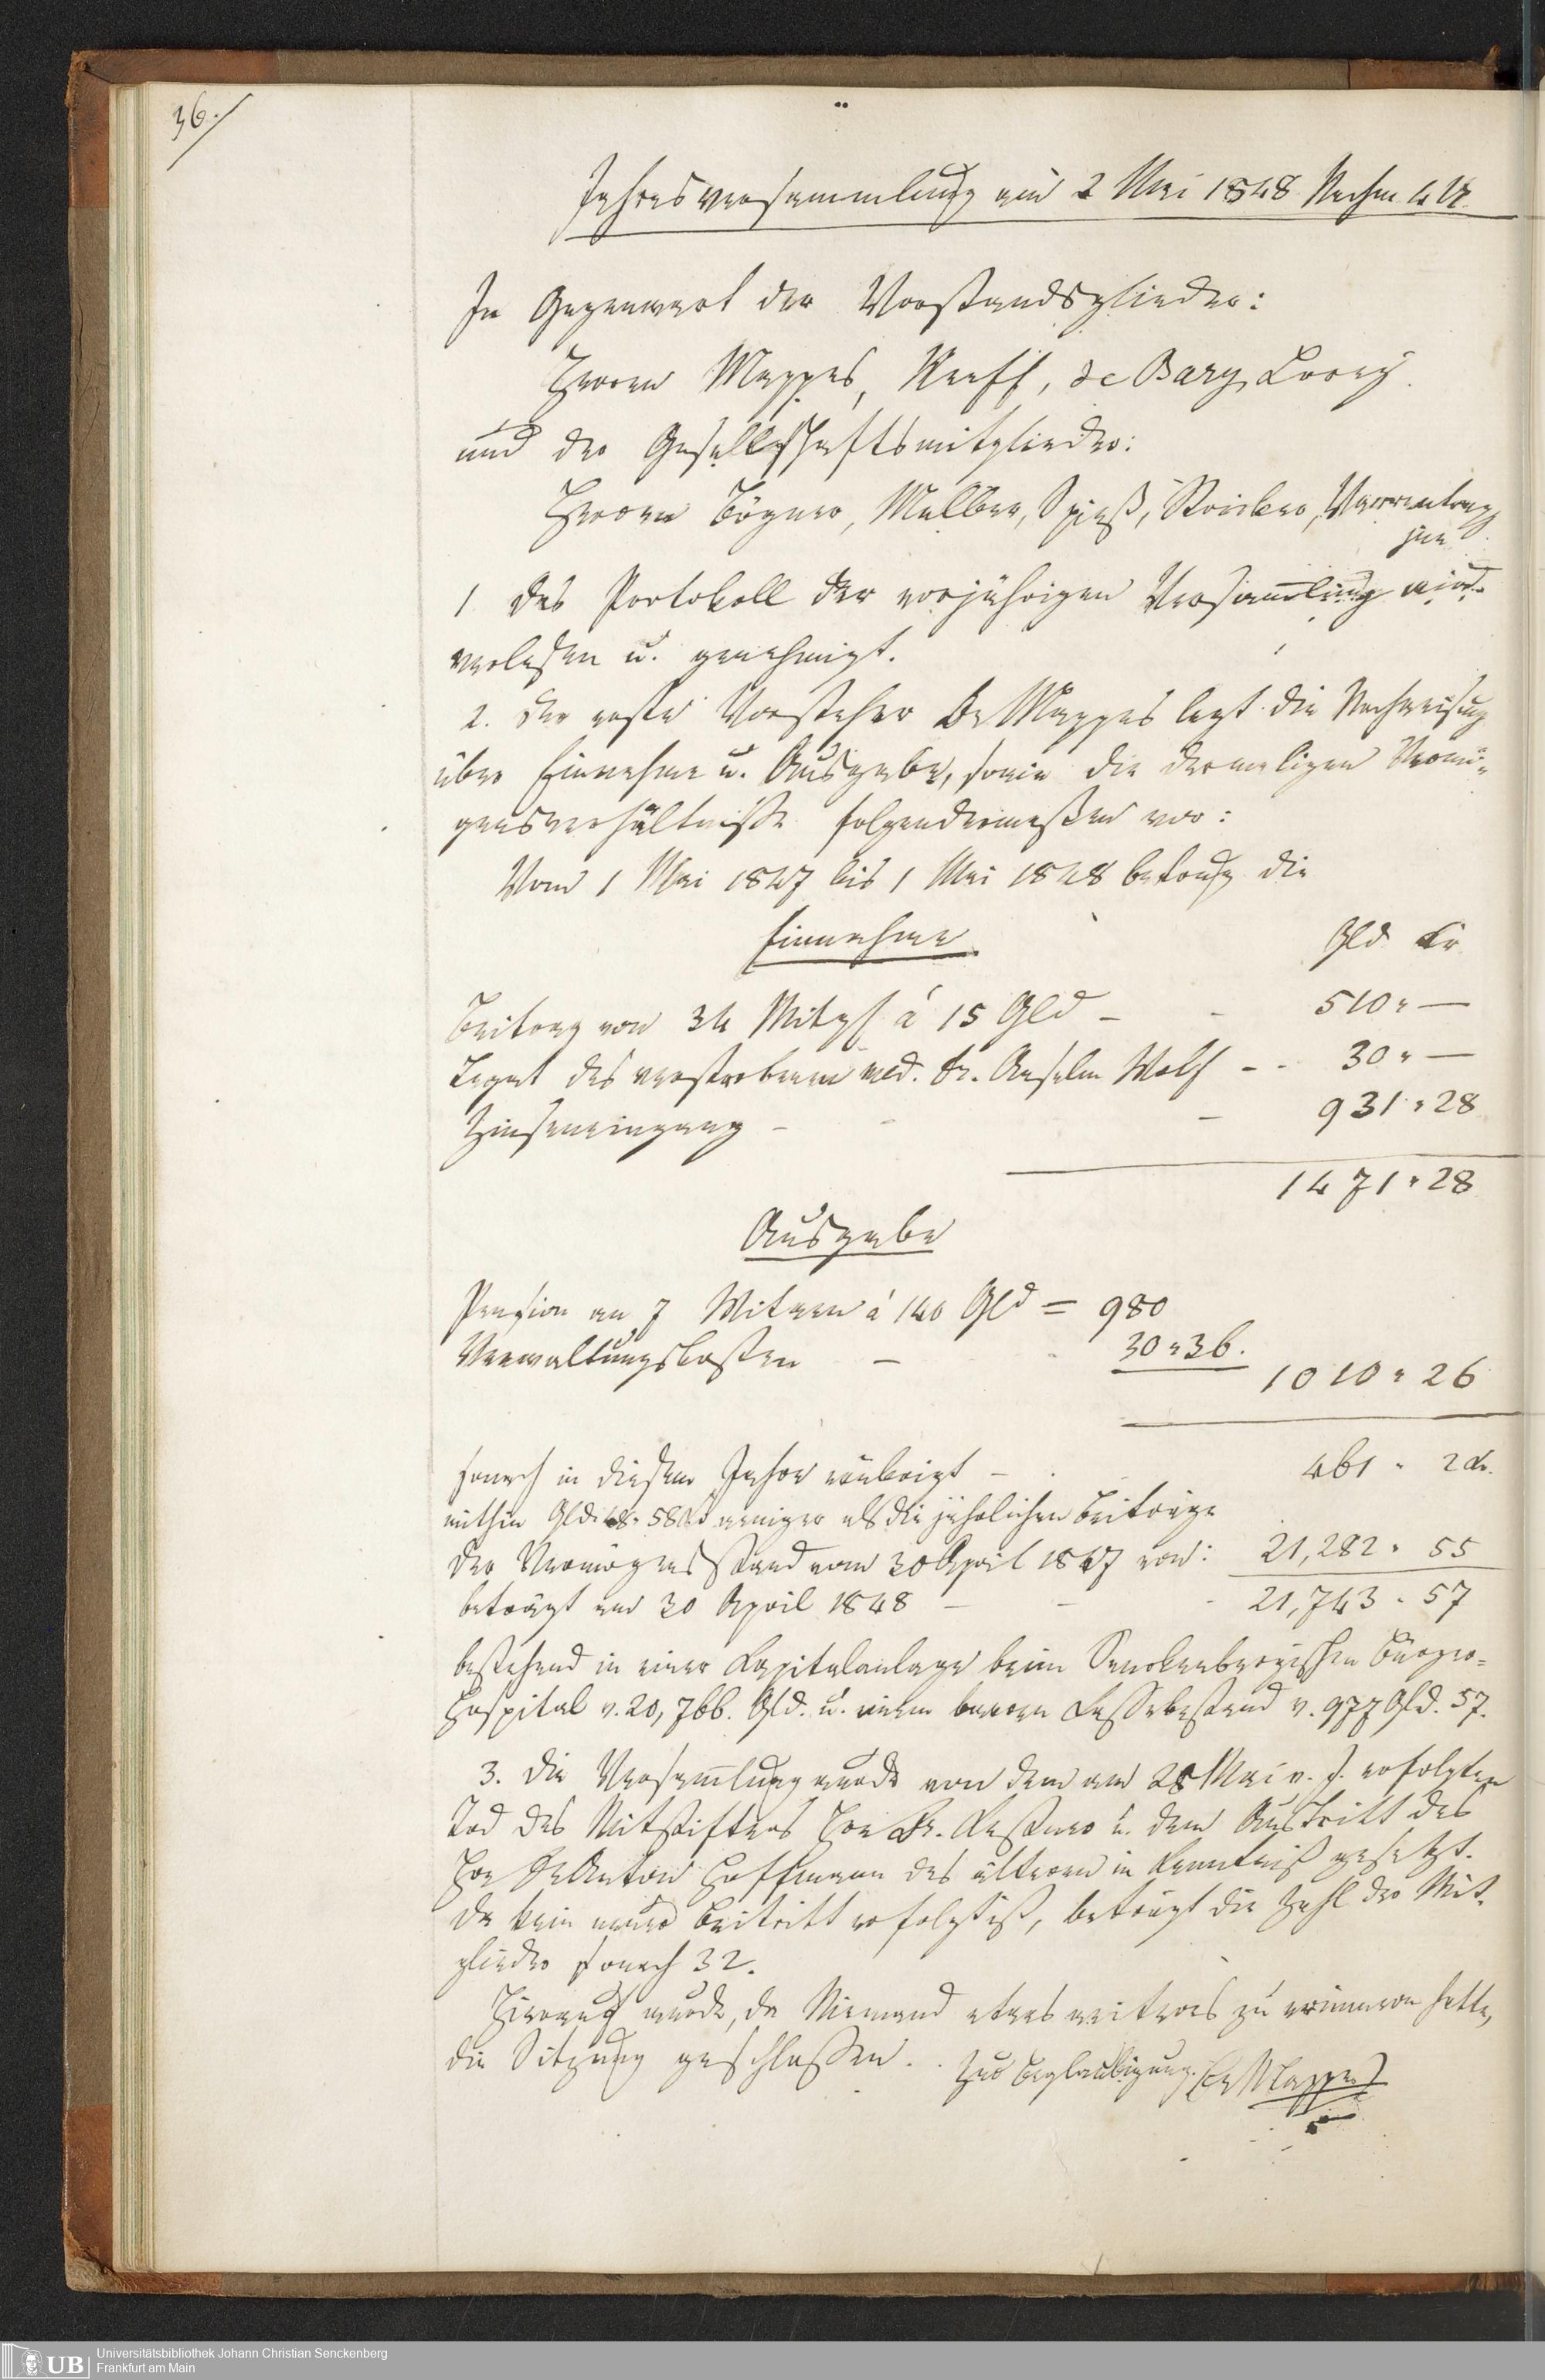 36./
Jahresversammlung am 2 Mai 1848 Nachm 4 U.
In Gegenwart der Vorstandsglieder:
Herren Mappes, Neeff, de Bary, Lorey.
und der Gesellschaftsmitglieder:
Herren Bögner, Melber, Spieß, Stricker, Varrentrapp
jun.
1 Das Protokoll der vorjährigen Versam̅lung wird
verlesen u. genehmigt.
2. Der erste Vorsteher Dr Mappes legt die Nachweisung
über Einnahme u. Ausgabe, sowie die dermaligen Vermö-
gensverhältnisse folgendermaßen vor:
Vom 1 Mai 1847 bis 1 Mai 1848 betrug die
Einnahme Gld Kr
Beitrag von 34 Mitgl á 15 Gld - - 510 " —
Legat des verstorbenen med. Dr. Anselm Wolf - - 30 " —
Zinseneingang - - - 931 " 28
1471 " 28
Ausgabe
Pension an 7 Witwen á 140 Gld = 980
Verwaltungskosten - - 30 " 36.
1010 " 26
sonach in diesem Jahre erübrigt - . 461 " 2 Kr.
mithin Gld. 48. 58 Kr weniger als die jährlichen Beiträge
Der Vermögensstand vom 30 April 1847 von: 21,282 " 55
beträgt am 30 April 1848 - - - 21,743 " 57
bestehend in einer Kapitalanlage beim Senckenbergischen Bürger-
hospital v. 20,766. Gld. u. einem baaren Kassebestand v. 977 Gld. 57.
3. Die Versam̅lung wurde von dem am 28 Mai v. J. erfolgten
Tod des Mitstifters Hrn Dr. Kestner u. dem Austritt des
Hrn Dr Anton Hoffmann des älteren in Kenntniß gesetzt.
Da kein neuer Beitritt erfolgt ist, beträgt die Zahl der Mit-
glieder sonach 32.
Hierauf wurde, da Niemand etwas weiteres zu erinnern hatte,
die Sitzung geschlossen. Zur Beglaubigung. Dr Mappes
UB
Universitätsbibliothek Johann Christian Senckenberg
Frankfurt am Main